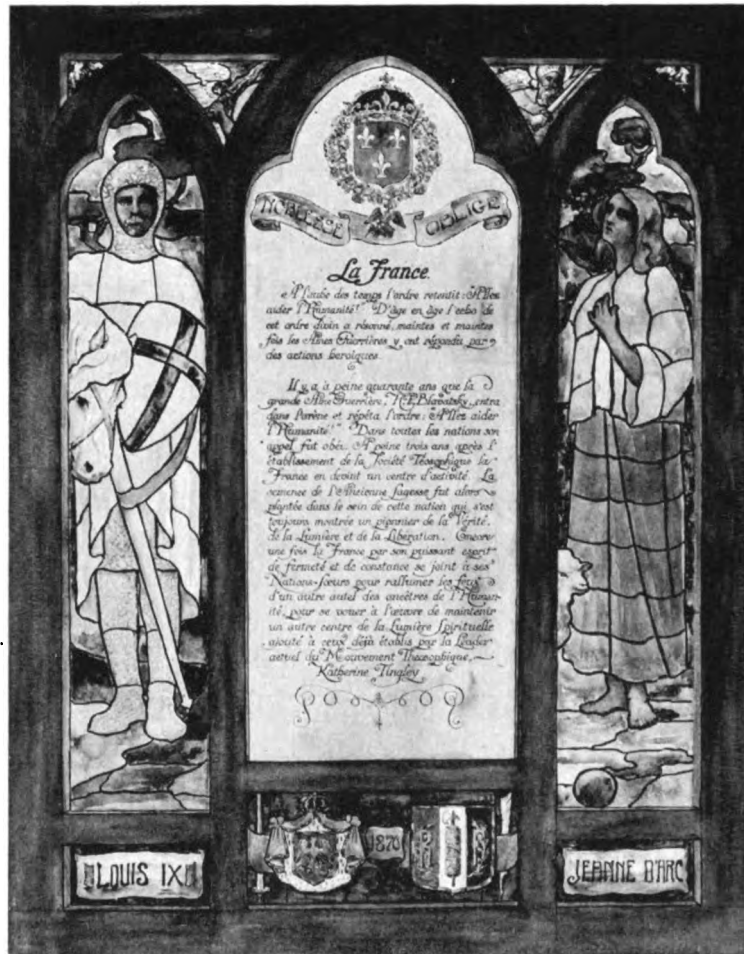 NOBLESSE OBLIGE
La France.
A l'aube des temps l'ordre retentit: "Allez
aider l'Humanité!" D'âge en âge l'echo de
cet ordre divin a résonné, maintes et maintes
fois les Ames Guerrières y ont répondu par
des actions heroiques.
Il y a à peine quarante ans que la
grande Ame Guerrière, H. P. Blavatsky, entra
dans l'arène et répéta l'ordre: "Allez aider
l'Humanité!" Dans toutes les nations son
appel fut obéi. A peine trois ans après l'
établissement de la Société Téosophique la
France en devint un centre d'activité. La
semence de l'Ancienne Sagesse fut alors
plantée dans le sein de cette nation qui s'est
toujours montrée un pionnier de la Vérité,
de la Lumière et de la Libération. Encore
une fois la France par son puissant esprit
de fermeté et de constance se joint à ses
Nations-sœurs pour rallumer les feux
d'un autre autel des ancêtres de l'Human-
ité, pour se vouer à l'œuvre de maintenir
un autre centre de la Lumière Spirituelle
ajouté à ceux déjà établis par la Leader
actuel du Mouvement Théosophique,
Katherine Tingley
1870
LOUIS IX
JEANNE D'ARC